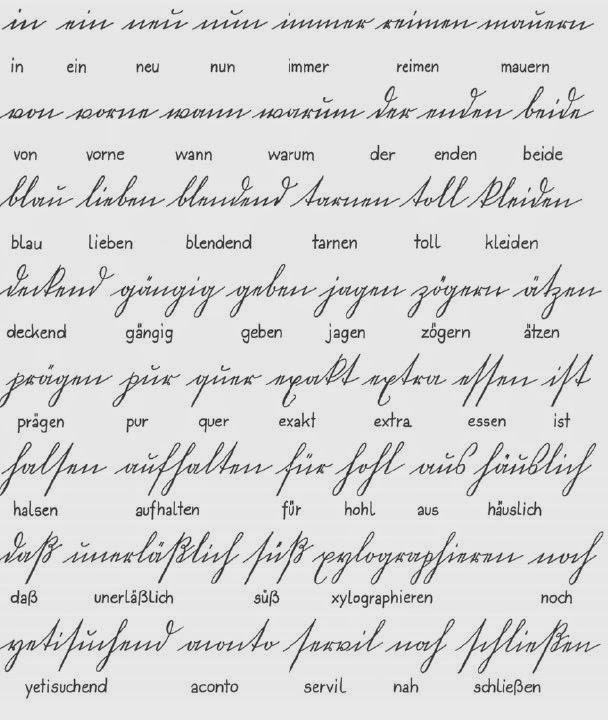 in ein neu nun immer reimen mauern
in ein neu nun immer reimen mauern
von vorne wann warum der enden beide
von vorne wann warum der enden beide
blau lieben blendend tarnen toll kleiden
blau lieben blendend tarnen toll kleiden
deckend gängig geben jagen zögern ätzen
deckend gängig geben jagen zögern ätzen
prägen pur quer exakt extra essen ist
prägen pur quer exakt extra essen ist
halsen aufhalten für hohl aus häuslich
halsen aufhalten für hohl aus häuslich
daß unerläßlich süß xylographieren noch
daß unerläßlich süß xylographieren noch
yetisuchend aconto servil nah schließen
yetisuchend aconto servil nah schließen